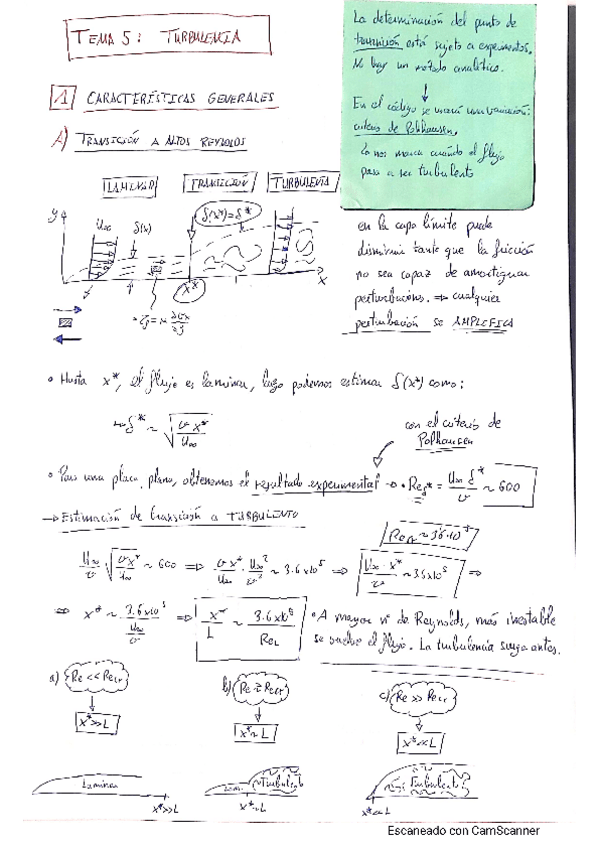 TEMA 5: TURBULENCIA
La determinación del punto de
transición está sujeto a experimentos.
No hay un metodo analítico.
En el código se usará una variación:
criterio de Polhausen.
Lo nos marca cuándo el flujo
pasa a ser turbulento
1 CARACTERÍSTICAS GENERALES
A) TRANSICIÓN A ALTOS REYNOLDS
LAMINAR TRANSICIÓN TURBULENTA
y U∞ δ(x) δ(x*)=δ*
x* x
en la capa límite puede
disminuir tanto que la fricción
no sea capaz de amortiguar
perturbaciones. ⇒ cualquier
perturbación se AMPLIFICA
• Hasta x*, el flujo es laminar, luego podemos estimar δ(x*) como:
δ* ~ √(υ x*/U∞)
con el criterio de
Polhausen
• Para una placa plana, obtenemos el resultado experimental → • Reδ* = U∞ δ*/υ ~ 600
→ Estimación de transición a TURBULENTO
U∞/υ · √(υx*/U∞) ~ 600 ⇒ υx*/U∞ · U∞²/υ² ~ 3.6x10⁵ ⇒ U∞·x*/υ ~ 3.5x10⁵ ⇒
⇒ x* ~ 3.6x10⁵/(U∞/υ) ⇒ x*/L ~ 3.6x10⁵/ReL
• A mayor nº de Reynolds, más inestable
se vuelve el flujo. La turbulencia surge antes.
a) Re << Recr b) Re ≳ Recr c) Re >> Recr
x*>>L x*~L x*<<L
Laminar Lam. Turbulento Turbulento
x*>>L x*~L x*<<L
Escaneado con CamScanner